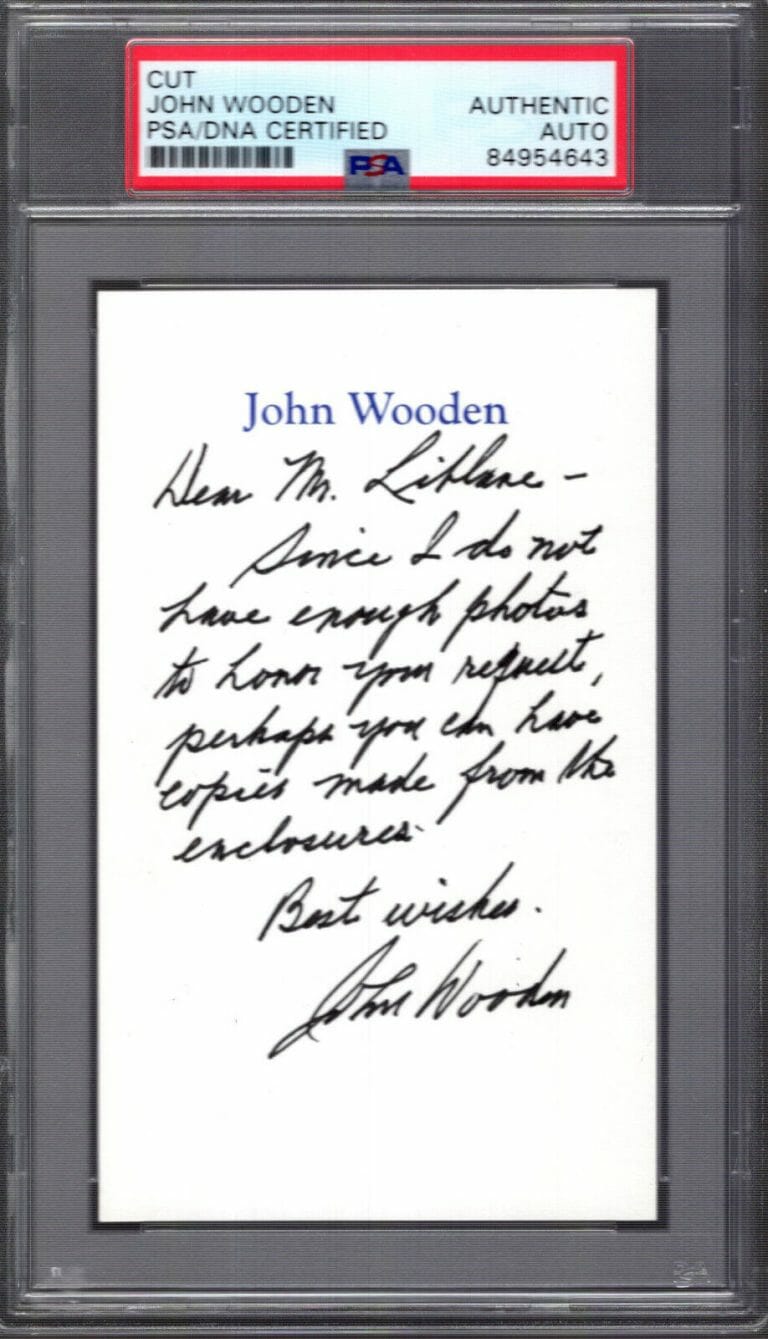 CUT
JOHN WOODEN AUTHENTIC
PSA/DNA CERTIFIED AUTO
PSA 84954643
John Wooden
Dear Mr.
Since I do not
have enough photos
to honor your request,
perhaps you can have
copies made from the
enclosures.
Best wishes.
John Wooden